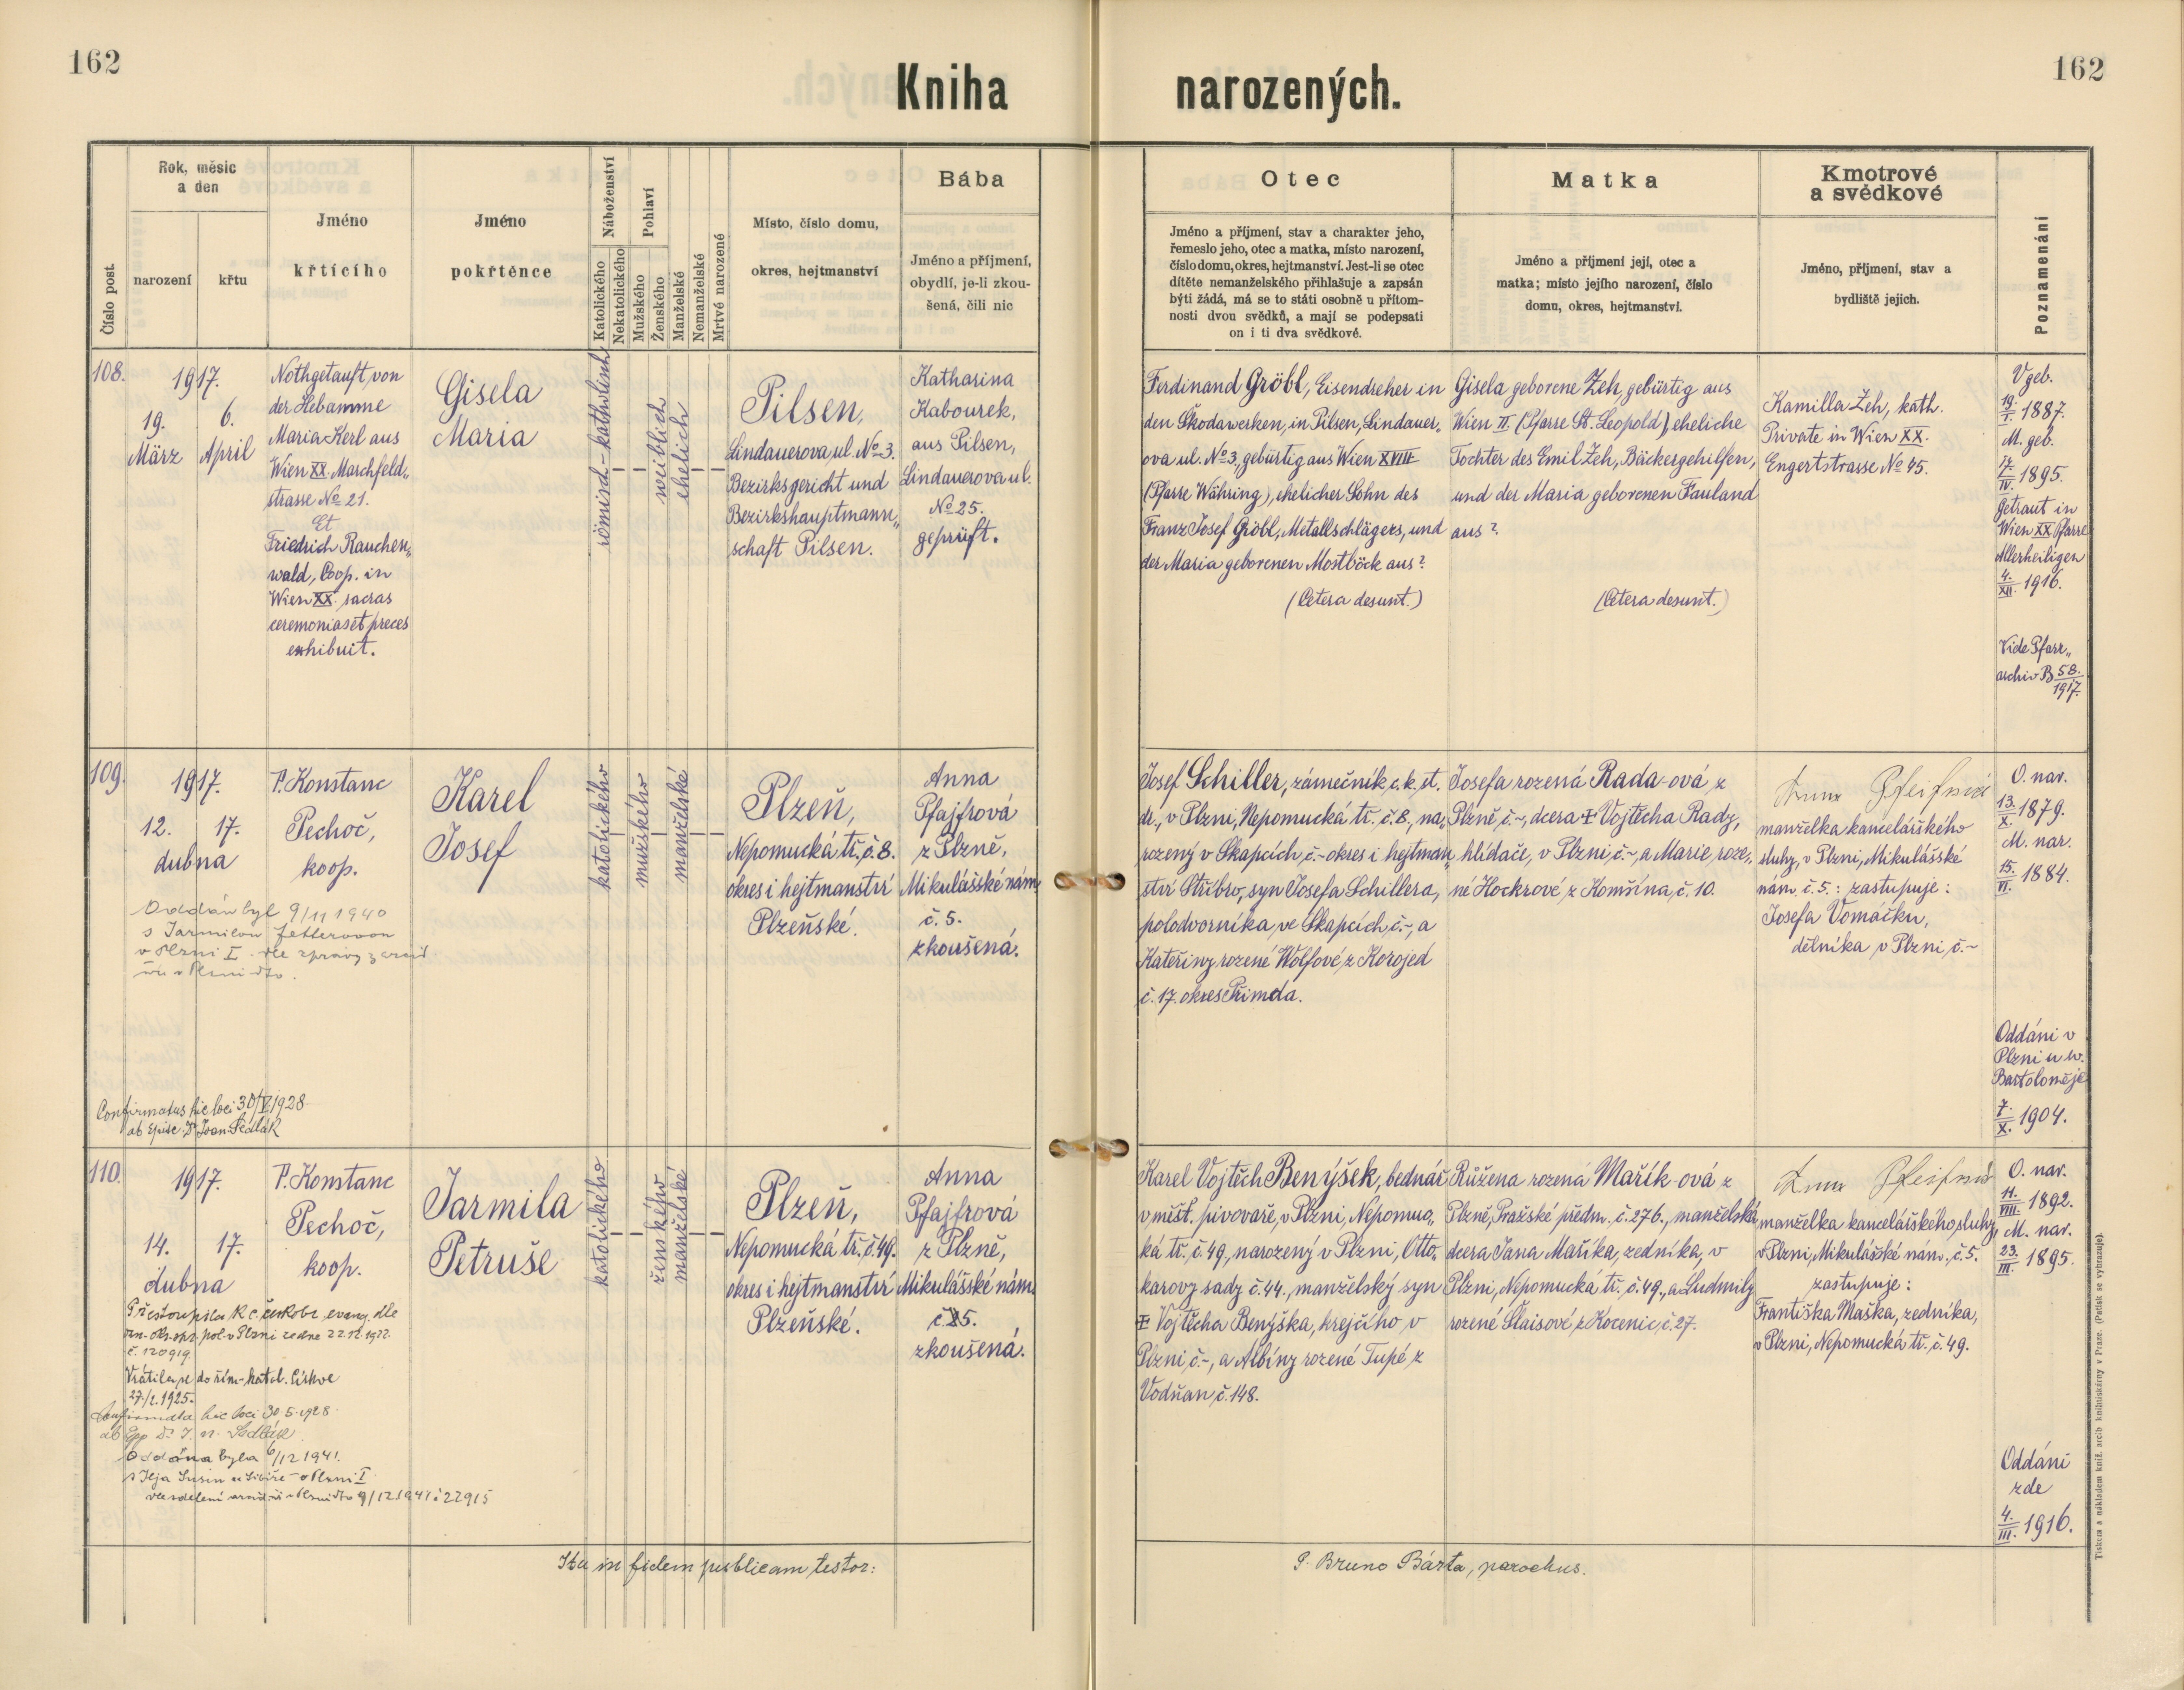 162
162
Kniha narozených.
Číslo post.
Rok, měsíc
a den
narození
křtu
Jméno
křtícího
Jméno
pokřtěnce
Náboženství
Katolického
Nekatolického
Pohlaví
Mužského
Ženského
Manželské
Nemanželské
Mrtvé narozené
Místo, číslo domu,
okres, hejtmanství
Bába
Jméno a příjmení,
obydlí, je-li zkou-
šená, čili nic
Otec
Jméno a příjmení, stav a charakter jeho,
řemeslo jeho, otec a matka, místo narození,
číslo domu, okres, hejtmanství. Jest-li se otec
dítěte nemanželského přihlašuje a zapsán
býti žádá, má se to státi osobně u přítom-
nosti dvou svědků, a mají se podepsati
on i ti dva svědkové.
Matka
Jméno a příjmení její, otec a
matka; místo jejího narození, číslo
domu, okres, hejtmanství.
Kmotrové
a svědkové
Jméno, příjmení, stav a
bydliště jejich.
Poznamenání
108.
1917.
19. 6.
März April
Nothgetauft von
der Hebamme
Maria Kerl aus
Wien XX. Marchfeld„
strasse No 21.
Et
Friedrich Rauchen„
wald, Coop. in
Wien XX. sacras
ceremonias et preces
exhibuit.
Gisela
Maria
römisch-katholisch
weiblich
ehelich
Pilsen,
Lindauerova ul. No 3.
Bezirksgericht und
Bezirkshauptmann„
schaft Pilsen.
Katharina
Kabourek,
aus Pilsen,
Lindauerova ul.
No 25.
geprüft.
Ferdinand Gröbl, Eisendreher in
den Škodawerken, in Pilsen, Lindauer„
ova ul. No 3., gebürtig aus Wien XVIII
(Pfarre Währing), ehelicher Sohn des
Franz Josef Gröbl, Metallschlägers, und
der Maria geborenen Mostböck aus?
(Cetera desunt.)
Gisela geborene Zeh, gebürtig aus
Wien II. (Pfarre St. Leopold) eheliche
Tochter des Emil Zeh, Bäckergehilfen,
und der Maria geborenen Fauland
aus?
(Cetera desunt.)
Kamilla Zeh, kath.
Private in Wien XX.
Engertstrasse No 45.
V. geb.
19./I. 1887.
M. geb.
7./IV. 1895.
Getraut in
Wien XX Pfarre
Allerheiligen
4./XII. 1916.
Vide Pfarr„
archiv B 58./1917.
109.
1917.
12. 17.
dubna
P. Konstanc
Pechoč,
koop.
Karel
Josef
katolického
mužského
manželské
Plzeň,
Nepomucká tř. č. 8.
okres i hejtmanství
Plzeňské.
Anna
Pfajfrová
z Plzně,
Mikulášské nám.
č. 5.
zkoušená.
Josef Schiller, zámečník c. k. st.
dr., v Plzni, Nepomucká tř. č. 8., na„
rozený v Skapcích, č.~ okres i hejtman„
ství Stříbro, syn Josefa Schillera,
polodvorníka, ve Skapcích, č.~, a
Kateřiny rozené Wolfové z Korojed
č. 17. okres Přimda.
Josefa rozená Rada-ová z
Plzně, č.~, dcera ‡ Vojtěcha Rady,
hlídače, v Plzni, č.~, a Marie roze„
né Hockrové z Komšína, č. 10.
manželka kancelářského
sluhy, v Plzni, Mikulášské
nám. č. 5.: zastupuje:
Josefa Vomáčku,
dělníka v Plzni, č.~
O. nar.
13./X. 1879.
M. nar.
15./VI. 1884.
Oddáni v
Plzni u sv.
Bartoloměje
7./X. 1904.
Oddán byl 9/11 1940
s Jarmilou
v Plzni I. dle zprávy
Confirmatus hic loci 30/V 1928
ab Episc. Dr. Joan. Sedlák
110.
1917.
14. 17.
dubna
P. Konstanc
Pechoč,
koop.
Jarmila
Petruše
katolického
ženského
manželské
Plzeň,
Nepomucká tř. č. 49.
okres i hejtmanství
Plzeňské.
Anna
Pfajfrová
z Plzně,
Mikulášské nám.
č. 5.
zkoušená.
Karel Vojtěch Benýšek, bednář
v měšt. pivovaře, v Plzni, Nepomuc„
ká tř. č. 49, narozený v Plzni, Otto„
karovy sady č. 44., manželský syn
‡ Vojtěcha Benýška, krejčího v
Plzni, č.~, a Albíny rozené Tupé z
Vodňan č. 148.
Růžena rozená Mařík-ová z
Plzně, Pražské předm. č. 276., manželská
dcera Jana Maříka, zedníka, v
Plzni, Nepomucká tř. č. 49., a Ludmily
rozené Šlaisové z Kocenic, č. 27.
manželka kancelářského sluhy,
v Plzni, Mikulášské nám. č. 5.
zastupuje:
Františka Maška, zedníka,
v Plzni, Nepomucká tř. č. 49.
O. nar.
11./VIII. 1892.
M. nar.
23./III. 1895.
Oddáni
zde
4./III. 1916.
Přestoupila k c. českobr. evang. dle
pol. v Plzni ze dne 22.12.1922.
č. 120919.
Vrátila se do řím-katol. církve
27./2. 1925.
Confirmata hic loci 30.5.1928
ab Epp Dr. J. N. Sedlák
Oddána byla 6/12 1941.
v Plzni I.
9/12 1941 č 22915
Ita in fidem publicam testor:
P. Bruno Bárta, parochus.
Tiskem a nákladem kníž. arcib. knihtiskárny v Praze. (Padlek se vyhrazuje).